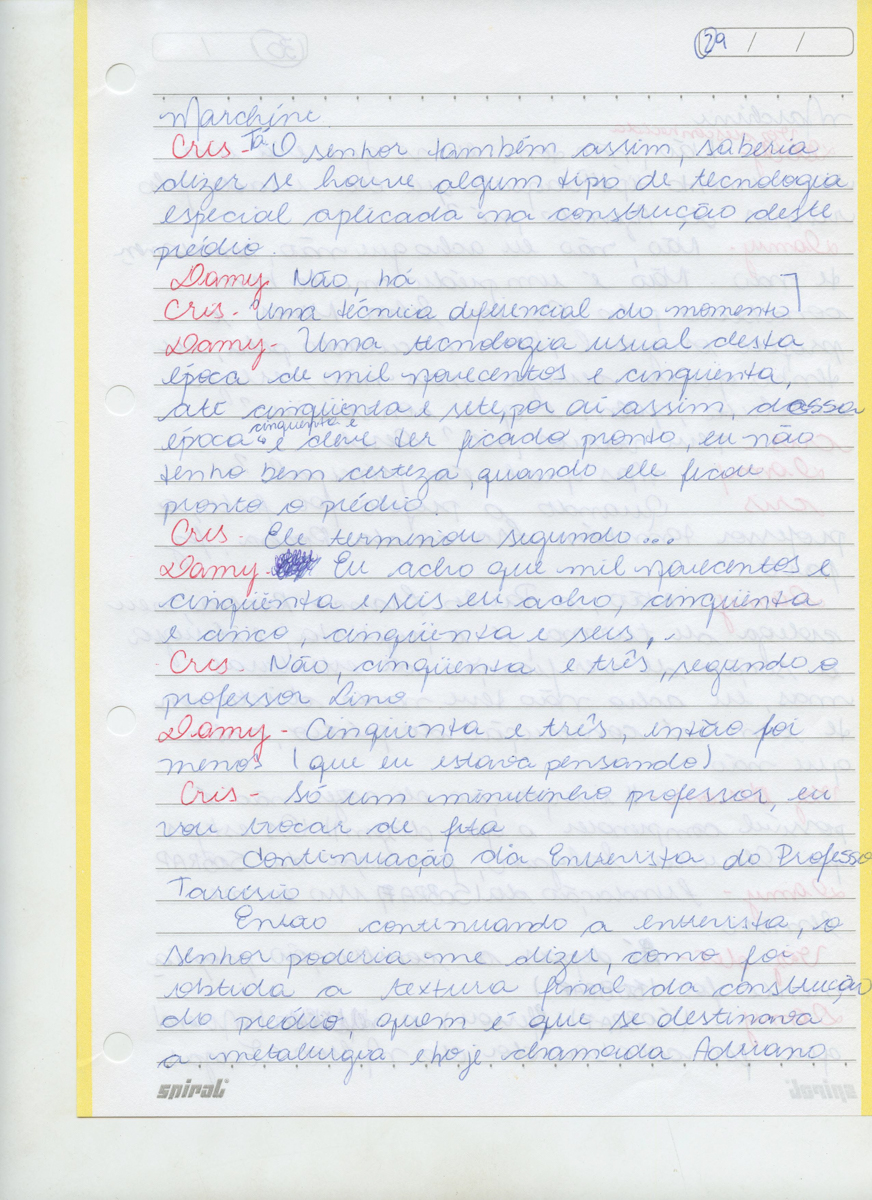 29 / /
Marchini.
Cris - Tá O senhor também assim, saberia
dizer se houve algum tipo de tecnologia
especial aplicada na construção deste
prédio.
Damy Não, há
Cris - Uma técnica diferencial do momento
Damy - Uma tecnologia usual desta
época de mil novecentos e cinqüenta,
até cinqüenta e sete, por aí assim, dessa
época cinqüenta e e deve ter ficado pronto, eu não
tenho bem certeza, quando ele ficou
pronto o prédio.
Cris - Ele terminou segundo...
Damy - Eu acho que mil novecentos e
cinqüenta e seis eu acho, cinqüenta
e cinco, cinqüenta e seis,.
Cris - Não, cinqüenta e três, segundo o
professor Lino
Damy - Cinqüenta e três, então foi
menos (que eu estava pensando)
Cris - Só um minutinho professor, eu
vou trocar de fita
Continuação da Entrevista do Professo
Tarcisio
Entao continuando a entrevista, o
senhor poderia me dizer, como foi
obtida a textura final da construção
do prédio, quem é que se destinava
a metalurgia e hoje chamada Adriano
spiral